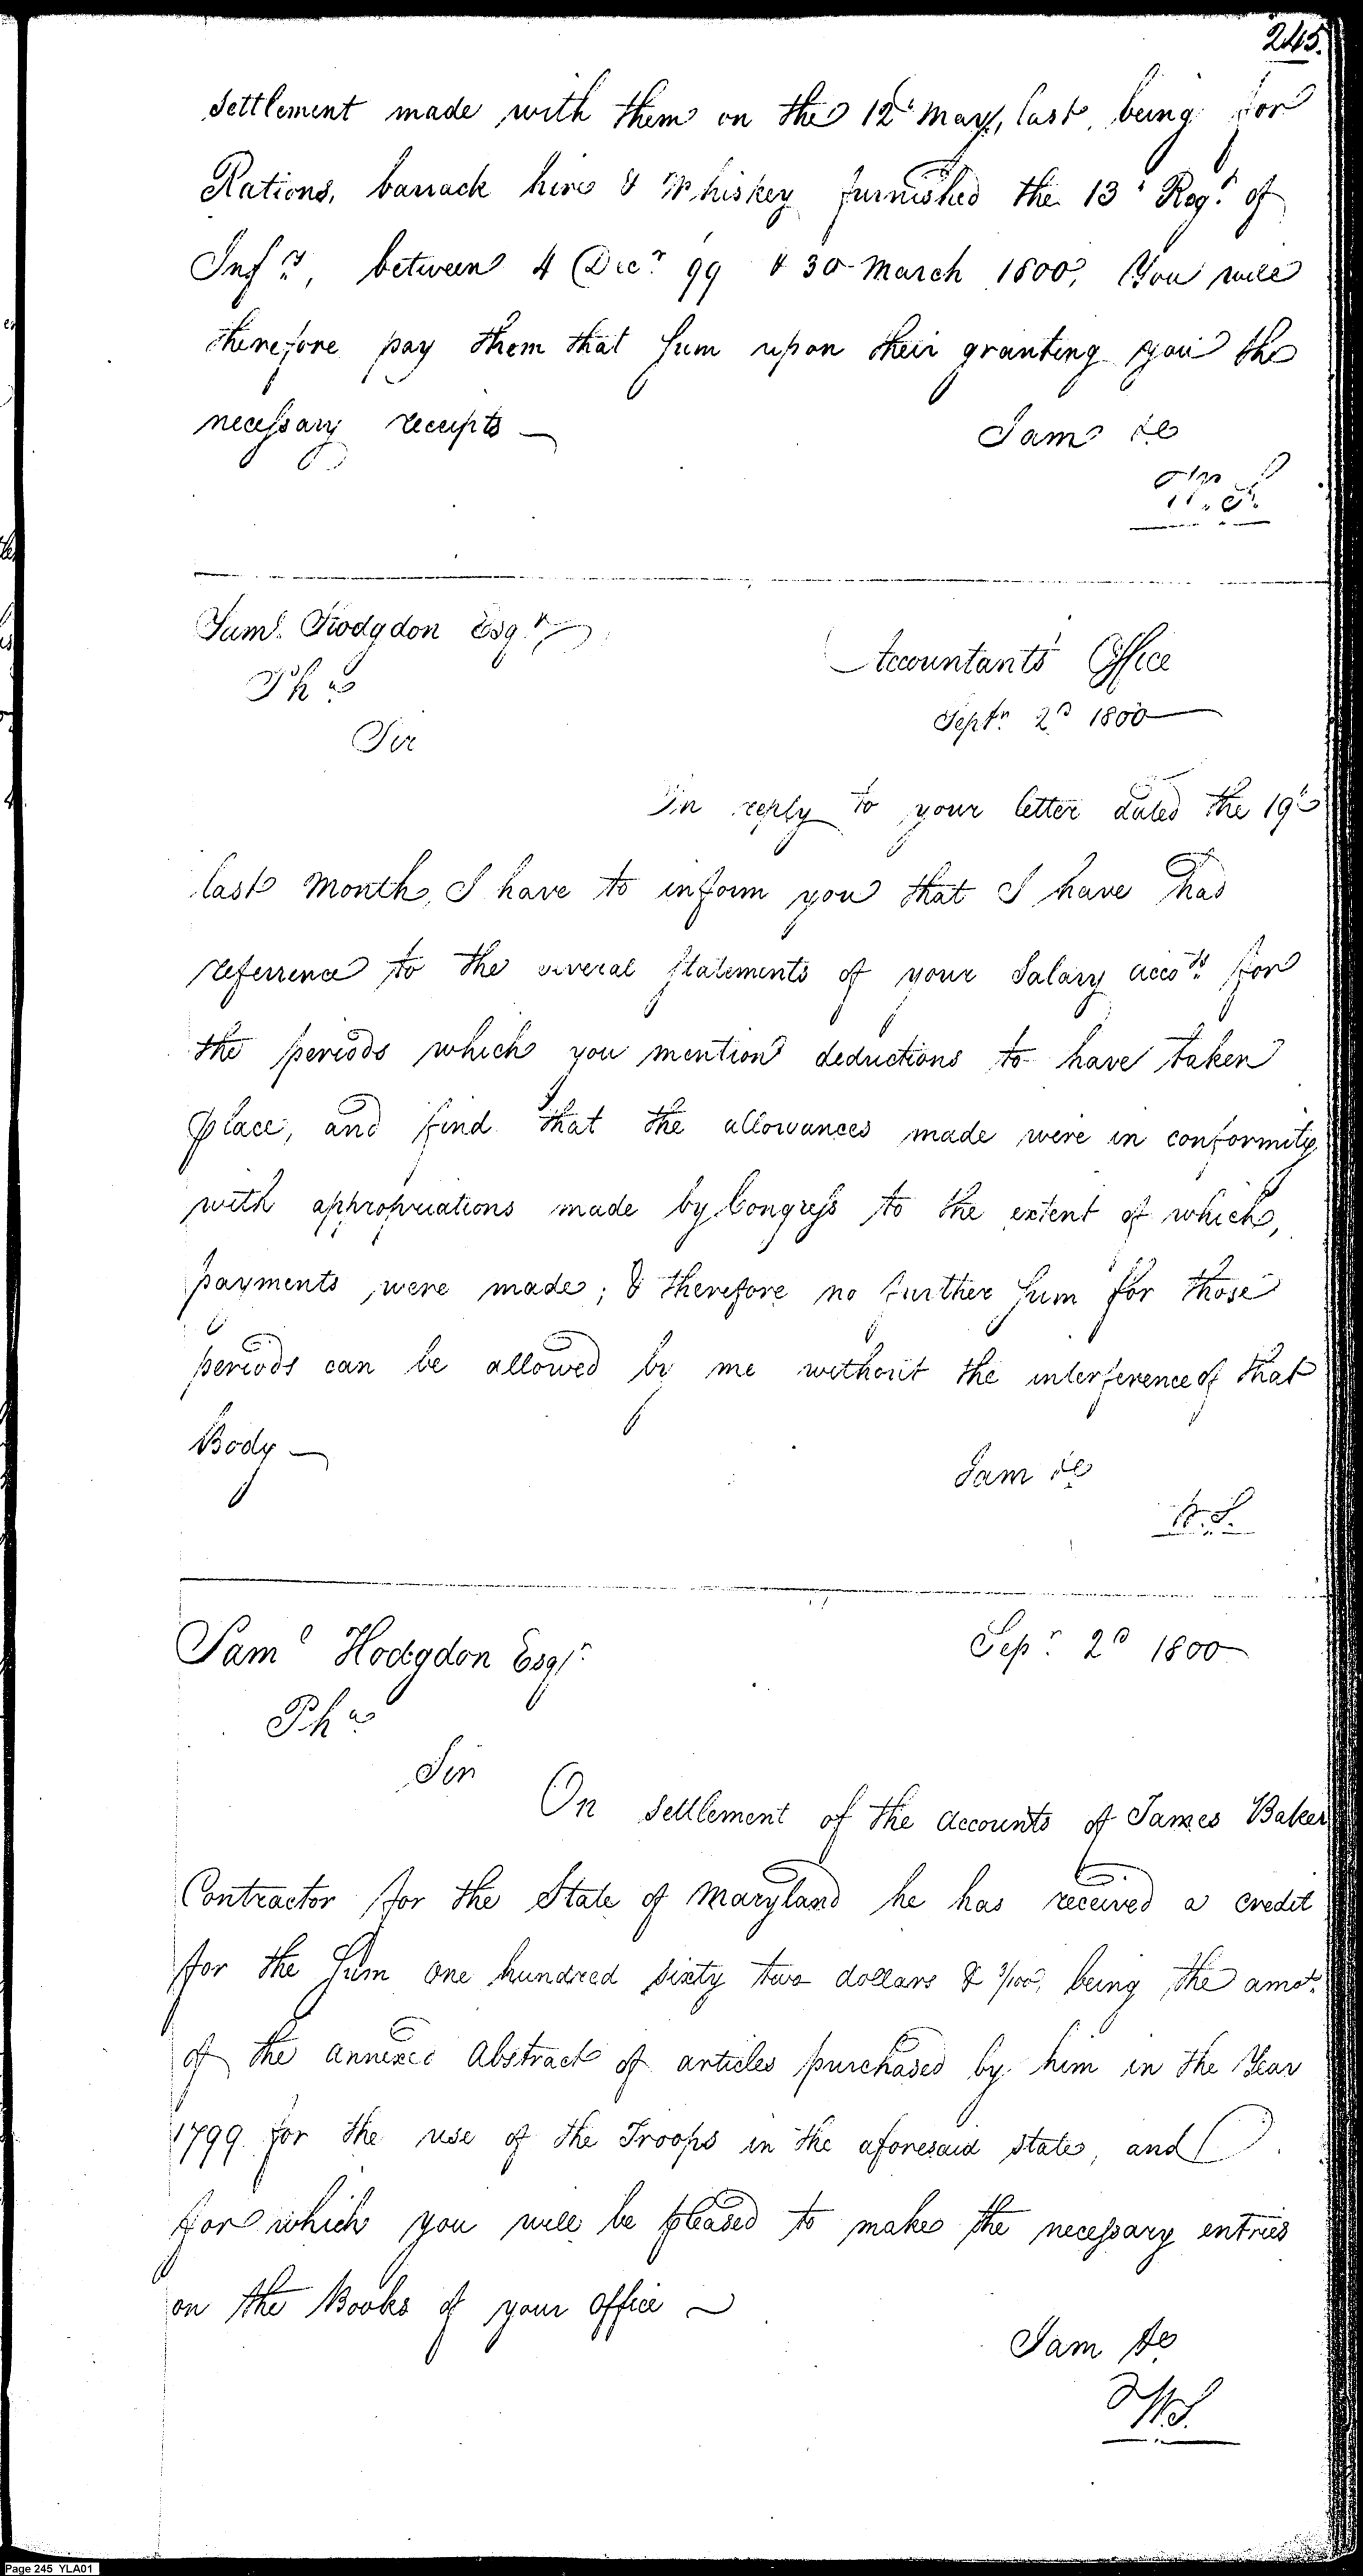 245.
settlement made with them on the 12th May, last, being for
Rations, barrack hire & Whiskey furnished the 13th Regt. of
Infy., between 4 Decr. 99 & 30 March 1800, You will
therefore pay them that Sum upon their granting you the
necessary receipts —
I am &c
W. S.
Saml. Hodgdon Esqr.
Pha.
Sir
Accountants Office
Septr. 2d 1800
In reply to your letter dated the 19th
last Month, I have to inform you that I have had
referrence to the several Statements of your Salary accots. for
the periods which you mention deductions to have taken
place, and find that the allowances made were in conformity
with appropriations made by Congress to the extent of which,
payments were made; & therefore no further Sum for those
periods can be allowed by me without the interference of that
Body —
I am &c
W. S.
Saml Hodgdon Esqr.
Pha.
Sepr. 2d 1800
Sir
On settlement of the accounts of James Baker
Contractor for the State of Maryland he has received a credit
for the Sum one hundred sixty two dollars & 3/100, being the amot.
of the annexed Abstract of articles purchased by him in the Year
1799 for the use of the Troops in the aforesaid state, and
for which you will be pleased to make the necessary entries
on the Books of your office ~
I am &c
W.S.
Page 245 YLA01